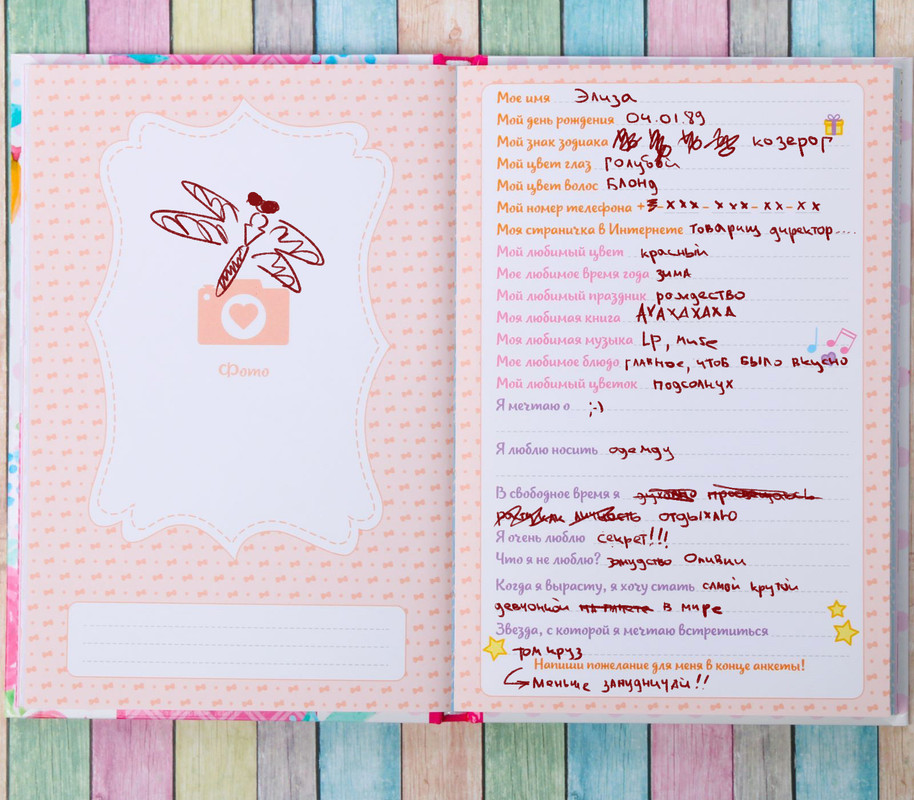 Фото
Мое имя Элиза
Мой день рождения 04.01.89
Мой знак зодиака козерог
Мой цвет глаз голубой
Мой цвет волос Блонд
Мой номер телефона +3-xxx-xxx-xx-xx
Моя страничка в Интернете товарищ директор....
Мой любимый цвет красный
Мое любимое время года зима
Мой любимый праздник рождество
Моя любимая книга АХАХАХАХА
Моя любимая музыка LP, Muse
Мое любимое блюдо главное, чтоб было вкусно
Мой любимый цветок подсолнух
Я мечтаю о ;-)
Я люблю носить одежду
В свободное время я духовно просвещаюсь
личность отдыхаю
Я очень люблю секрет!!!
Что я не люблю? занудство Оливии
Когда я вырасту, я хочу стать самой крутой
девчонкой на планете в мире
Звезда, с которой я мечтаю встретиться
том круз
Напиши пожелание для меня в конце анкеты!
Меньше занудничай!!